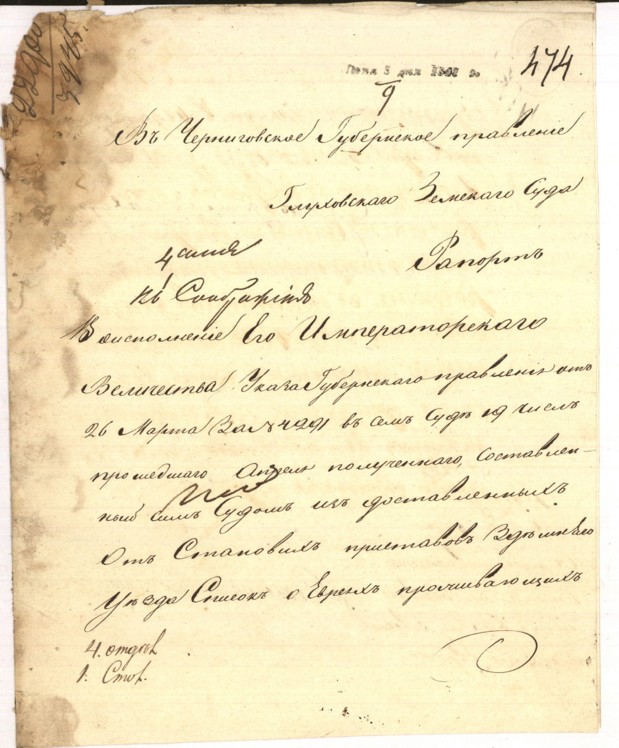 474.
9
Въ Черниговское Губернское правленіе
Глуховскаго Земскаго Суда
Рапортъ
къ Соображенію
Во исполненіе Его Императорскаго
Величества Указа Губернскаго правленія отъ
26 Марта За № 4291 въ семъ Судѣ 19 числъ
прошедшаго Апрѣля полученнаго, составлен-
ный симъ Судомъ изъ доставленныхъ
Отъ Становихъ приставовъ Здѣшнѣго
Уѣзда Списокъ о Евреяхъ проживающихъ
4. отдѣл
1. Стол.